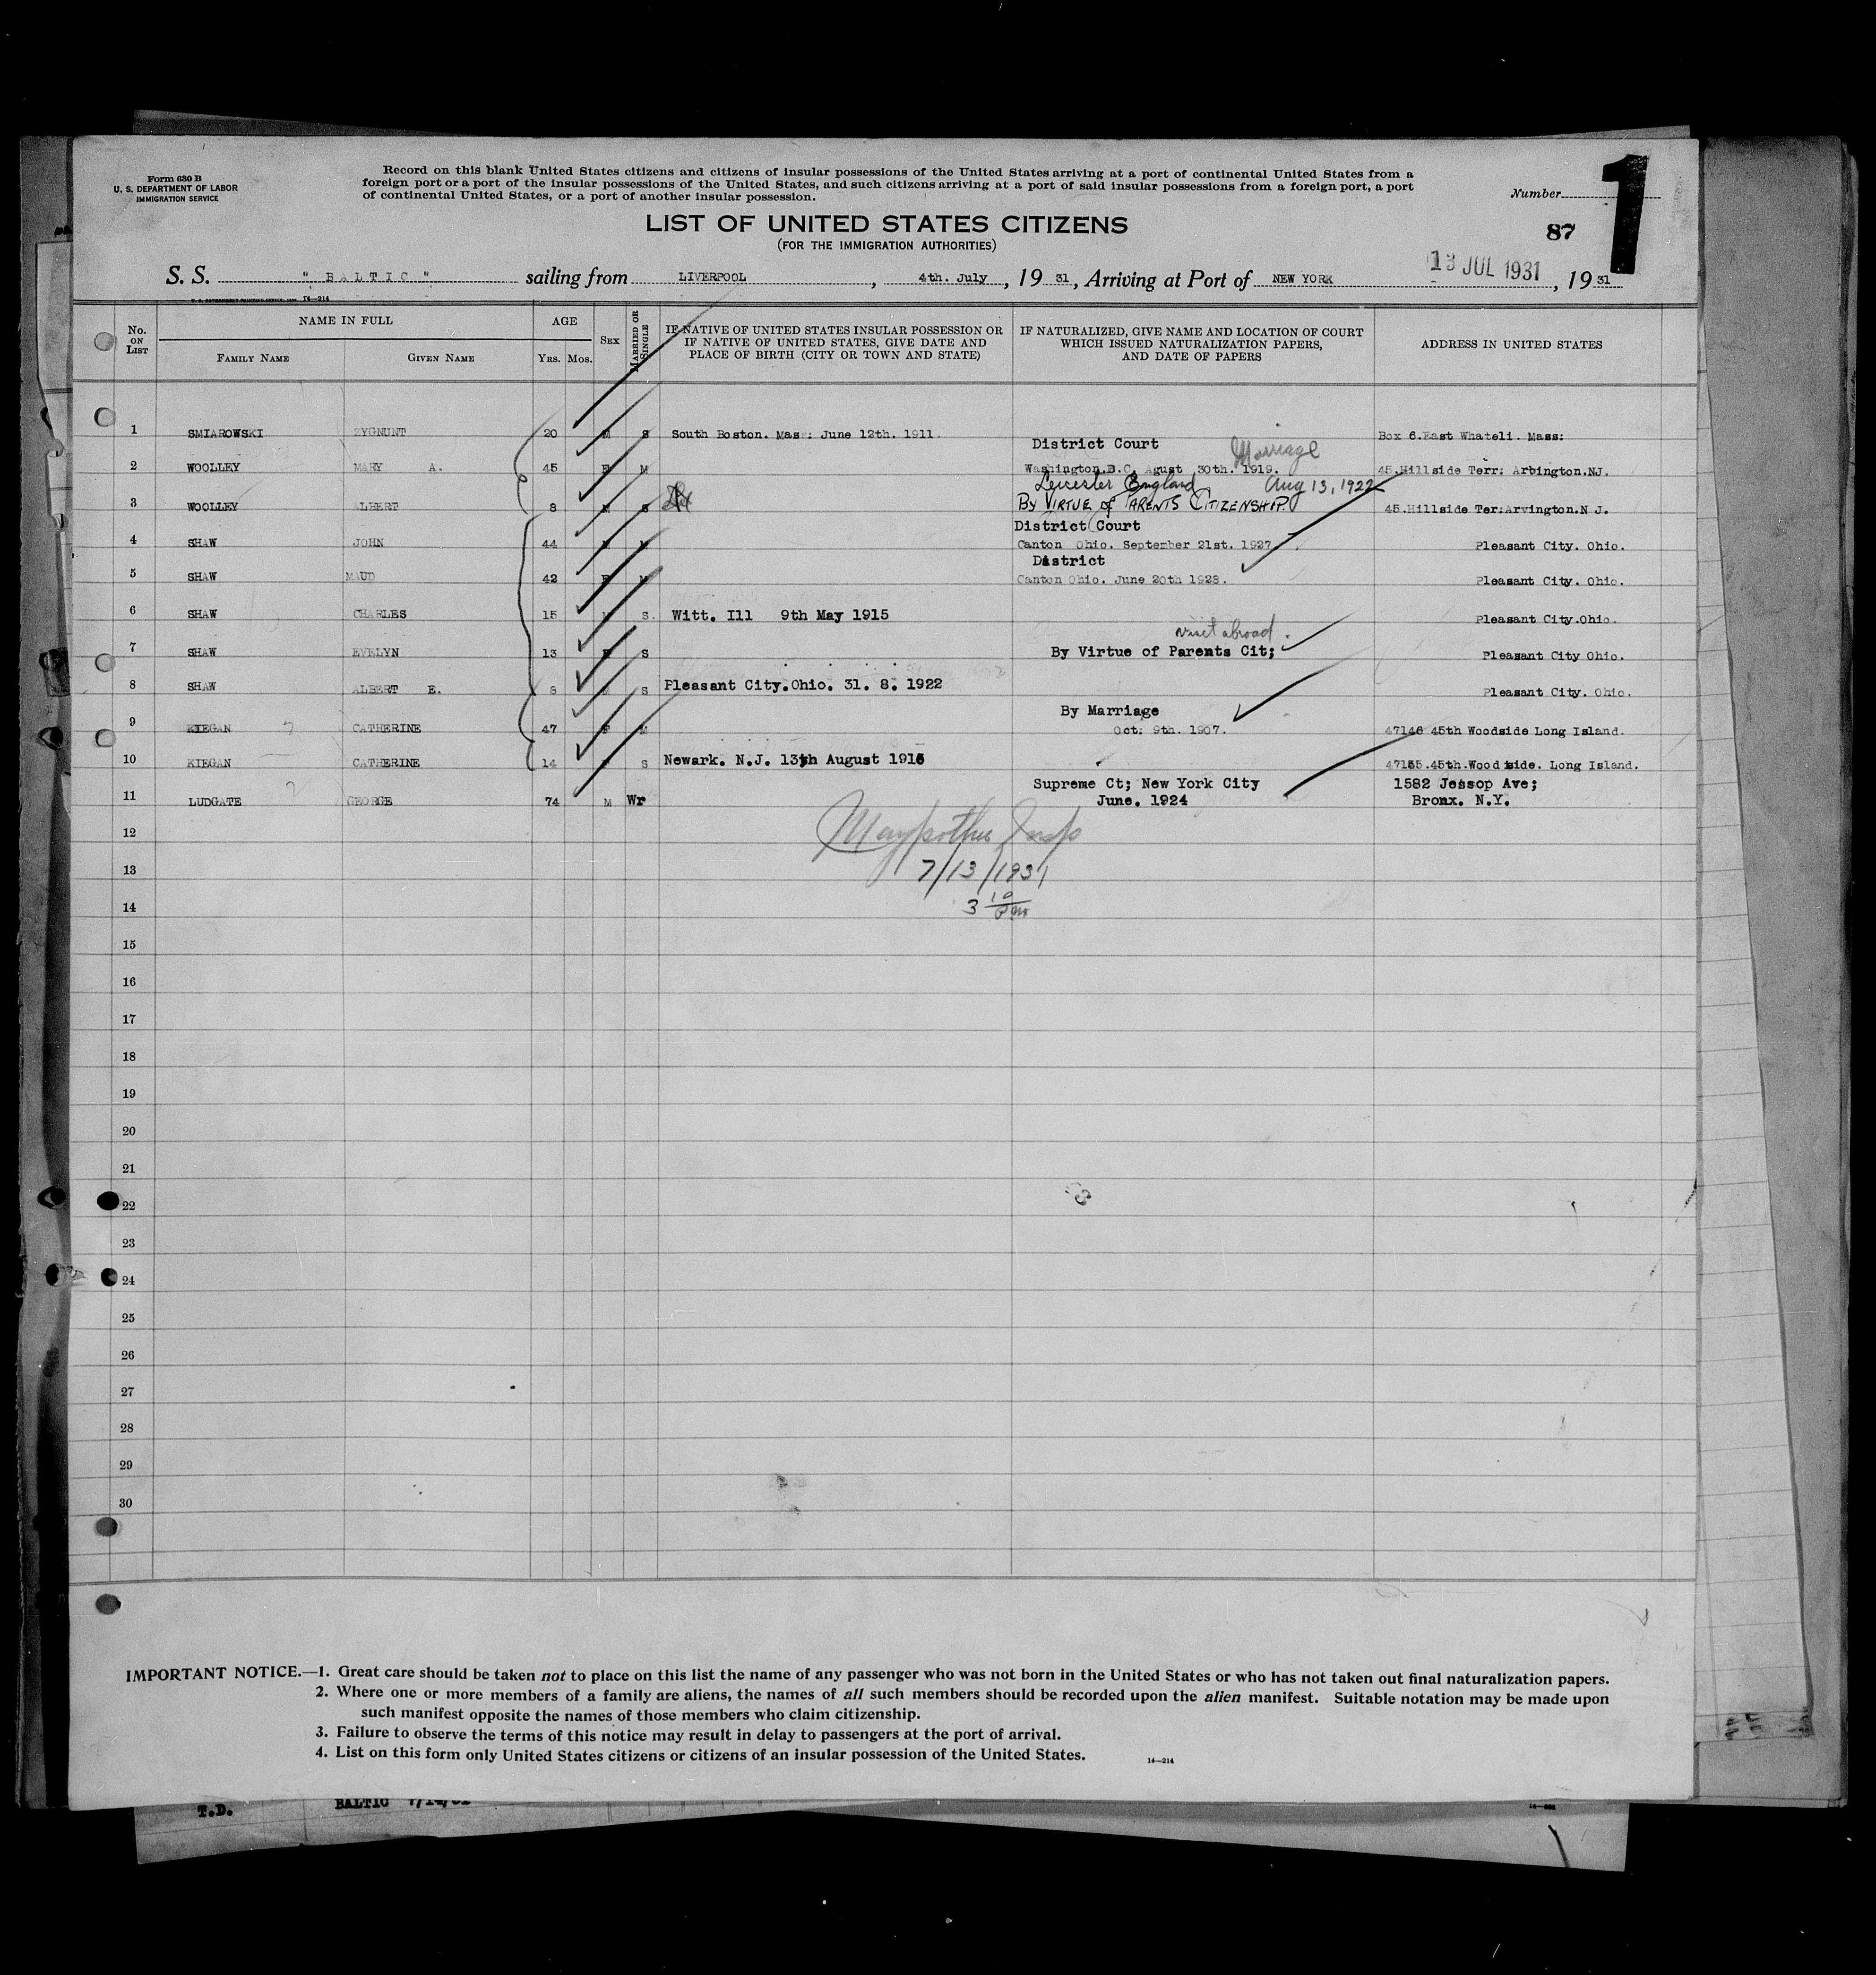 Form 630 B
U. S. DEPARTMENT OF LABOR
IMMIGRATION SERVICE
Record on this blank United States citizens and citizens of insular possessions of the United States arriving at a port of continental United States from a
foreign port or a port of the insular possessions of the United States, and such citizens arriving at a port of said insular possessions from a foreign port, a port
of continental United States, or a port of another insular possession.
Number
1
LIST OF UNITED STATES CITIZENS
(FOR THE IMMIGRATION AUTHORITIES)
87
S. S. "BALTIC" sailing from LIVERPOOL, 4th. July, 19 31, Arriving at Port of NEW YORK 13 JUL 1931, 19 31
U. S. GOVERNMENT PRINTING OFFICE 14—214
No. ON LIST
NAME IN FULL
FAMILY NAME GIVEN NAME
AGE
YRS. MOS.
SEX
MARRIED OR SINGLE
IF NATIVE OF UNITED STATES INSULAR POSSESSION OR
IF NATIVE OF UNITED STATES, GIVE DATE AND
PLACE OF BIRTH (CITY OR TOWN AND STATE)
IF NATURALIZED, GIVE NAME AND LOCATION OF COURT
WHICH ISSUED NATURALIZATION PAPERS,
AND DATE OF PAPERS
ADDRESS IN UNITED STATES
1 SMIAROWSKI ZYGMUNT 20 M S South Boston. Mass: June 12th. 1911. Box 6.East Whateli. Mass:
District Court Marriage
2 WOOLLEY MARY A. 45 F M Washington.D.C. Agust 30th. 1919. 45.Hillside Terr: Arbington.NJ.
Leicester England Aug 13, 1922
3 WOOLLEY ALBERT 8 M S BY VIRTUE of PARENTS CITIZENSHIP. 45.Hillside Ter:Arvington.N J.
District Court
4 SHAW JOHN 44 M M Canton Ohio. September 21st. 1927 Pleasant City. Ohio.
District
5 SHAW MAUD 42 F M Canton Ohio. June 20th 1928. Pleasant City. Ohio.
6 SHAW CHARLES 15 M S. Witt. Ill 9th May 1915 Pleasant City.Ohio.
visit abroad.
7 SHAW EVELYN 13 F S By Virtue of Parents Cit; Pleasant City Ohio.
8 SHAW ALBERT E. 8 M S Pleasant City.Ohio. 31. 8. 1922 Pleasant City. Ohio.
By Marriage
9 KIEGAN CATHERINE 47 F M Oct: 9th. 1907. 47146 45th Woodside Long Island.
10 KIEGAN CATHERINE 14 F S Newark. N.J. 13th August 1916 47155.45th.Woodside. Long Island.
Supreme Ct; New York City 1582 Jessop Ave;
11 LUDGATE GEORGE 74 M Wr June. 1924 Bronx. N.Y.
12
13 7/13/1931
14 3 10 Pm
15
16
17
18
19
20
21
22
23
24
25
26
27
28
29
30
IMPORTANT NOTICE.—1. Great care should be taken not to place on this list the name of any passenger who was not born in the United States or who has not taken out final naturalization papers.
2. Where one or more members of a family are aliens, the names of all such members should be recorded upon the alien manifest. Suitable notation may be made upon
such manifest opposite the names of those members who claim citizenship.
3. Failure to observe the terms of this notice may result in delay to passengers at the port of arrival.
4. List on this form only United States citizens or citizens of an insular possession of the United States.
14—214
T.D. BALTIC